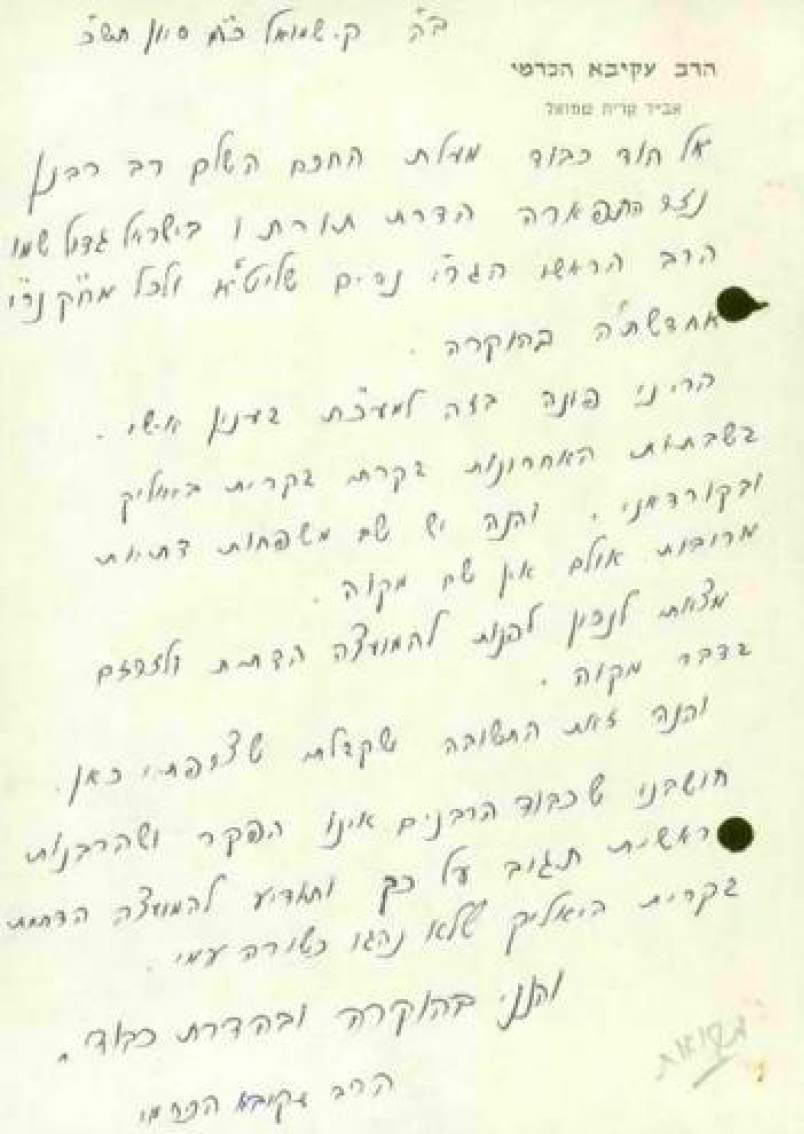 ב"ה ק. שמואל כ"ח סיון תש"כ
הרב עקיבא הכרמי
אב"ד קרית שמואל
אל הוד כבוד מעלת החכם השלם רב רבנן
נזר התפארה הדרת תורתו בישראל גדול שמו
הרב הראשי הגר"י נסים שליט"א ולכל מח"ק נר"ו
אחדשת"ה בהוקרה .
הריני פונה בזה למעכ"ת בענין אישי .
בשבתות האחרונות בקרתי בקרית ביאליק
ובקורדאני . והנה יש שם משפחות דתיות
מרובות אולם אין שם מקוה .
מצאתי לנכון לפנות להמועצה הדתית ולזרזם
בדבר מקוה .
והנה זאת התשובה שקבלתי שצרפתי כאן .
חושבני שכבוד הרבנים אינו הפקר ושהרבנות
הראשית תגיב על כך ותודיע להמועצה הדתית
בקרית ביאליק שלא נהגו כשורה עמי .
והנני בהוקרה ובהדרת כבוד .
הרב עקיבא הכרמי